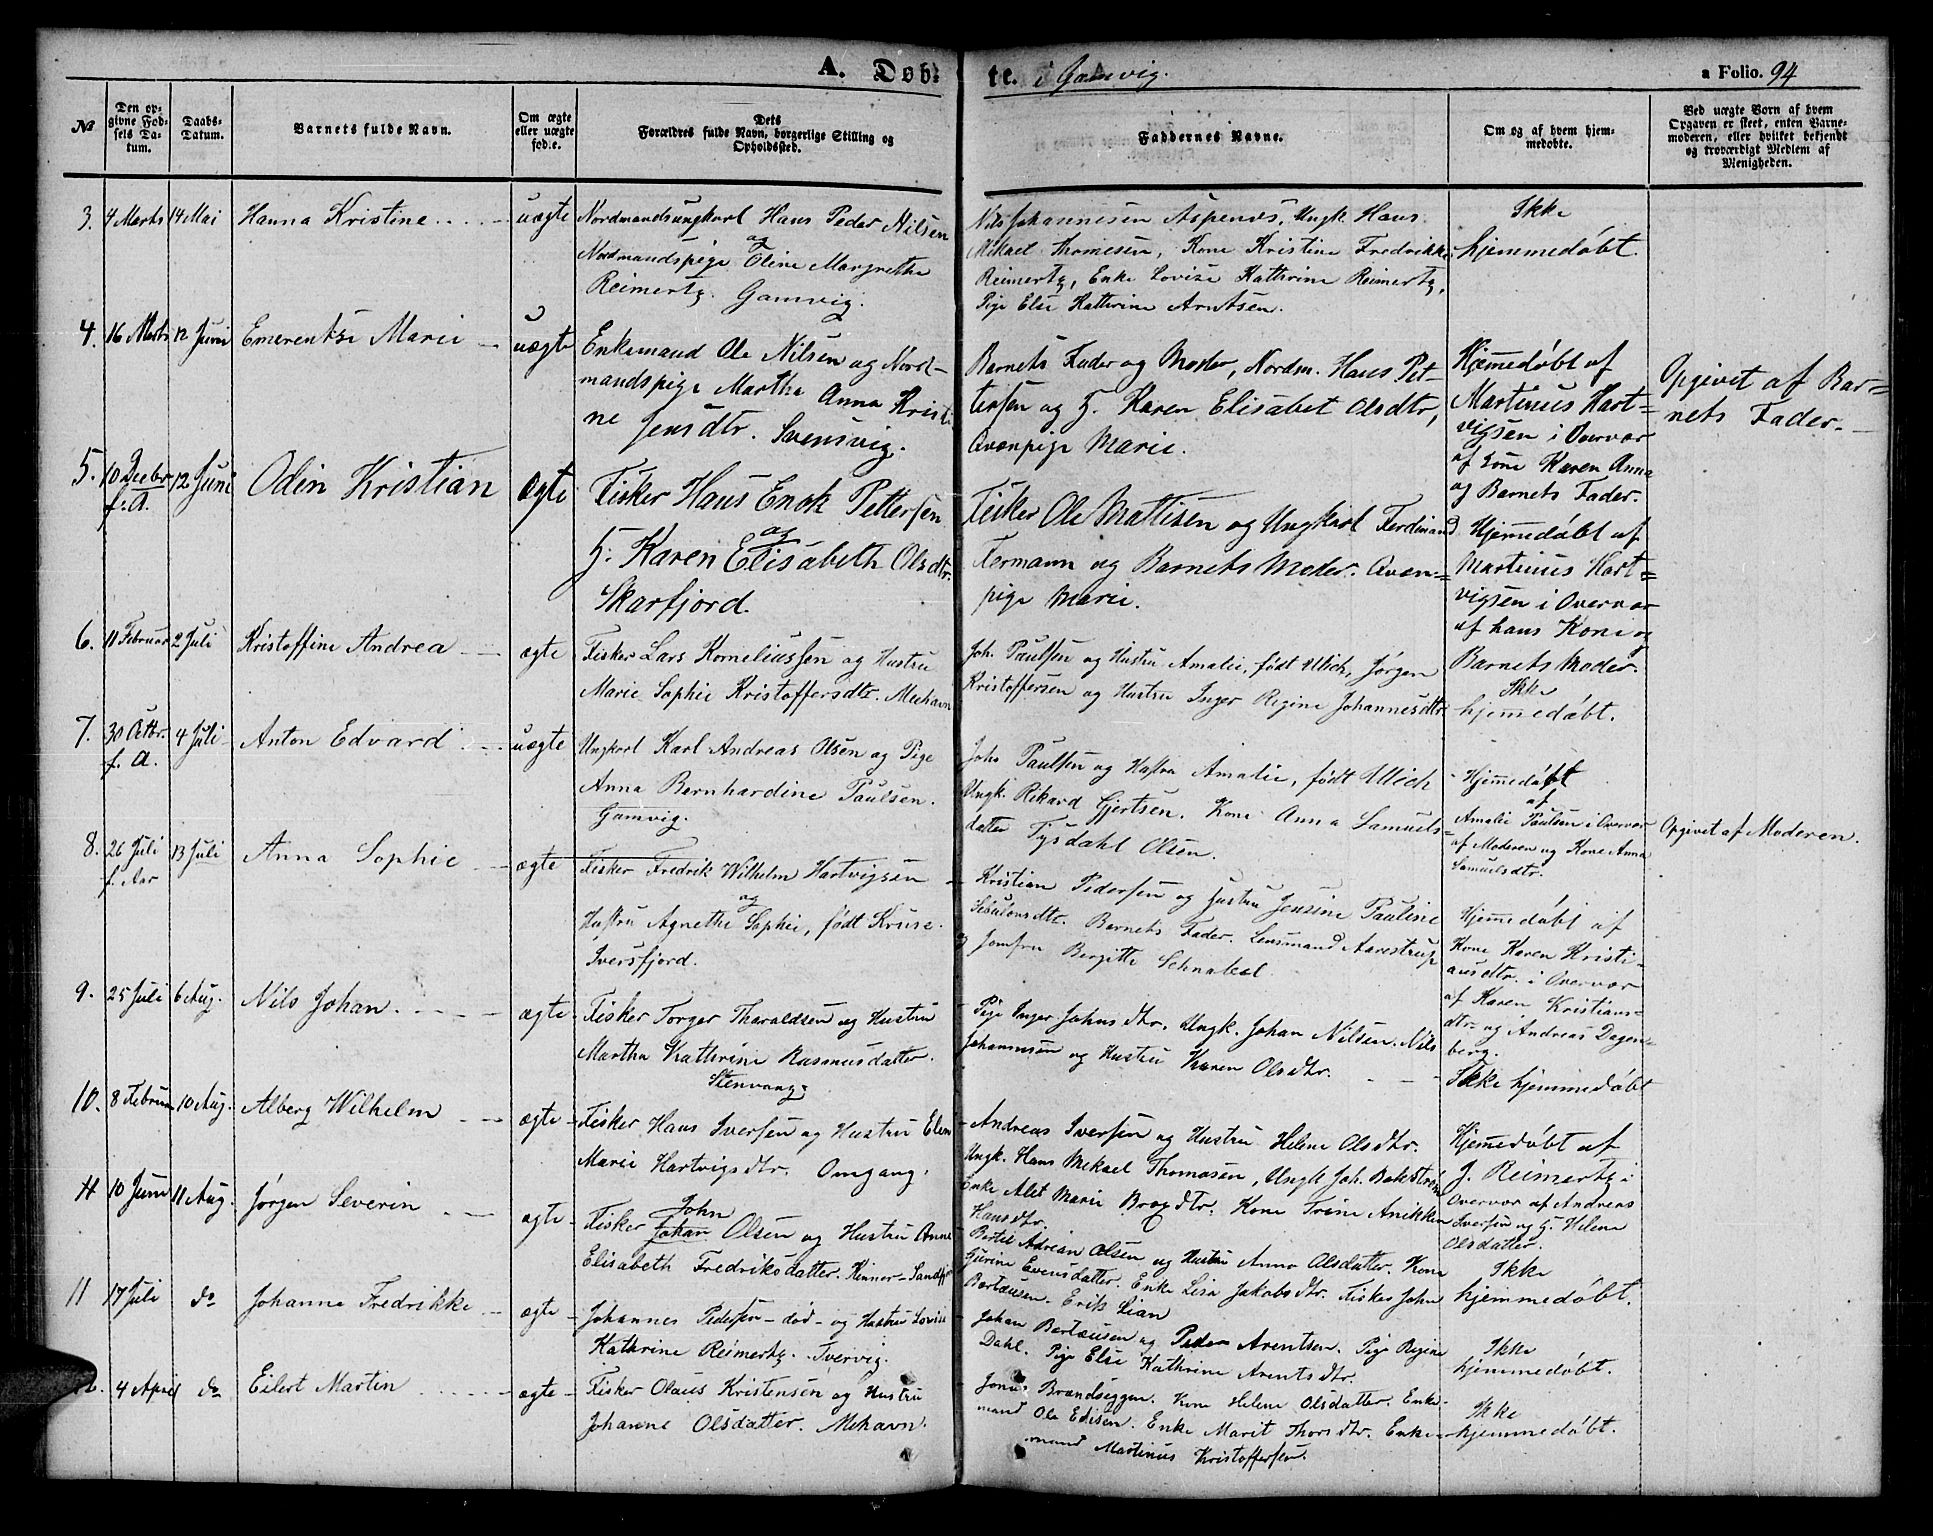 A. Døbte. i Gamvig.
a Folio. 94
№
Den opgivne Fødsels Datum.
Daabs-Datum.
Barnets fulde Navn.
Om ægte eller uægte fød.e.
Dets Forældres fulde Navn, borgerlige Stilling og Opholdssted.
Faddernes Navne.
Om og af hvem hjemmedøbte.
Ved uægte Børn af hvem Opgaven er skeet, enten Barnemoderen, eller hvilket bekjendt og troværdigt Medlem af Menigheden.
3. 4 Marts 14 Mai Hanna Kristine uægte
Nordmandsungkarl Hans Peder Nilsen
og
Nordmandspige Oline Margrethe
Reimertz. Gamvig.
Nils Johannesen Aspenes, Ungk. Hans
Mikael Thomesen, Kone Kristine Fredrikke
Reimertz, Enke Lovise Kathrine Reimertz,
Pige Else Kathrine Arntsen.
Ikke
hjemmedøbt.
4. 16 Marts 12 Juni Emerentse Marie uægte
Enkemand Ole Nilsen og Nord-
mandspige Martha Anna Kristi
ne Jensdtr. Svensvig.
Barnets Fader og Moder, Nordm. Hans Pet-
tersen og H. Karen Elisabet Olsdtr,
Qvænpige Marie.
Hjemmedøbt af
Martinus Hart-
vigsen i Overvær
af Kone Karen Anna
og Barnets Fader.
Opgivet af Bar=
nets Fader.
5. 10 Decbr f. A. 12 Juni Odin Kristian ægte
Fisker Hans Enok Pettersen
og
H. Karen Elisabeth Olsdtr.
Skarfjord.
Fisker Ole Mattisen og Ungkarl Ferdinand
Fermann og Barnets Moder. Qvæn=
pige Marie.
Hjemmedøbt af
Martinus Hart=
vigsen i Overvær
af hans Kone og
Barnets Moder.
6. 11 Februar 2 Juli Kristoffine Andrea ægte
Fisker Lars Korneliussen og Hustru
Marie Sophie Kristoffersdtr. Mehavn
Joh. Paulsen og Hustru Amalie, født Ulich, Jørgen
Kristoffersen og Hustru Inger Regine Johannesdtr
Ikke
hjemmedøbt.
7. 30 Octbr. f. A. 4 Juli Anton Edvard uægte
Ungkarl Karl Andreas Olsen og Pige
Anna Bernhardine Paulsen.
Gamvig.
Johs Paulsen og Hustru Amalie, født Ulich
Ungk. Rikard Gjertsen. Kone Anna Samuels-
datter Tysdahl Olsen.
Hjemmedøbt
af
Amalie Paulsen i Overvær
af Moderen og Kone Anna
Samuelsdtr.
Opgivet af Moderen.
8. 26 Juli f. Aar 13 Juli Anna Sophie ægte
Fisker Fredrik Wilhelm Hartvigsen
og
Hustru Agnethe Sophie, født Kruse.
Iversfjord.
Kristian Pedersen og Hustru Jensine Pauline
Sebulonsdtr. Barnets Fader. Lensmand Aarestrup
og Jomfru Birgitte Schnabel
Hjemmedøbt af
Kone Karen Kristi-
ansdtr. i Overvær
af Karen Kristians-
dtr. og Andreas Dagen-
berg.
9. 25 Juli 6 Aug. Nils Johan. ægte
Fisker Torger Tharaldsen og Hustru
Martha Kathrine Rasmusdatter.
Stenvaag.
Pige Inger Johnsdtr. Ungk. Johan Nilsen. Nils
Johannesen og Hustru Karen Olsdtr.
Ikke hjemmedøbt
10. 8 Februar 10 Aug. Alberg Wilhelm ægte
Fisker Hans Iversen og Hustru Elen
Marie Hartvigsdtr. Omgang.
Andreas Iversen og Hustru Helene Olsdtr.
Ungk. Hans Mekael Thomasen, Ungk Joh. Bekstrøm
Enke Alet Marie Broxdtr. Kone Trine Anikken
Hansdtr.
Hjemmedøbt af
J. Reimertz i
Overvær af Andreas
Iversen og H. Helene
Olsdatter.
11 10 Juni 11 Aug. Jørgen Severin ægte
John
Fisker Johan Olsen og Hustru Anne
Elisabeth Fredriksdatter. Kinnar-Sandfj
Bertel Adrian Olsen og Hustru Anna Olsdatter. Kone
Gjerine Evensdatter. Enke Lisa Jakobsdtr. Fisker John
Bertausen. Erik Lian
Ikke
hjemmedøbt.
11 17 Juli do Johanne Fredrikke ægte
Johannes Pedersen - død - og Hustru Lovise
Kathrine Reimertz. Tvervig.
Johan Bertausen og Peder Arentsen. Pige Regine
Dahl. Pige Else Kathrine Arentsdtr.
Ikke
hjemmedøbt.
12. 4 April do Eilert Martin ægte
Fisker Olaus Kristensen og Hustru
Johanne Olsdatter. Mehavn.
Jonas Brandseggen. Kone Helene Olsdatter. Enke-
mand Ole Edisen. Enke Marit Thorsdtr. Enke-
mand Martinus Kristoffersen.
Ikke
hjemmedøbt.